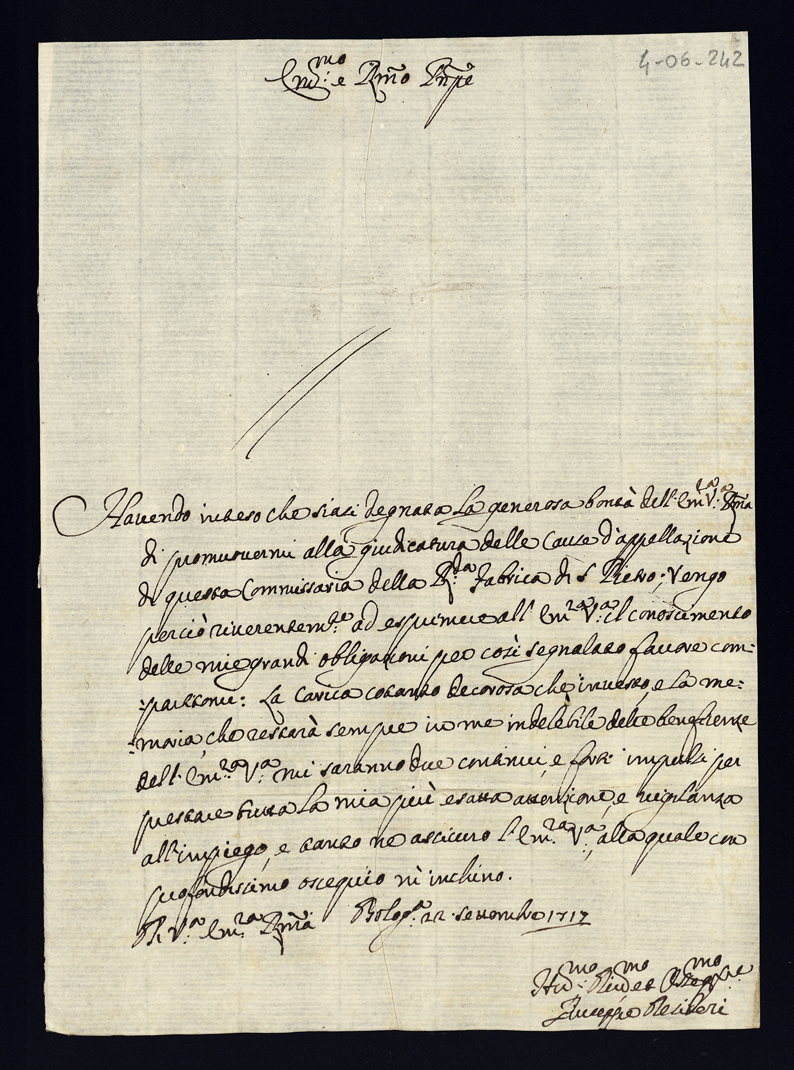 4-06-242
Em.mo e R.mo Pñpe
Havendo inteso che siasi degnata la generosa bontà dell'Em.ra V.ra R.ma
di promuovermi alla giudicatura delle Cause d'appellazione
di questa Commissaria della R.da Fabrica di S. Pietro; vengo
perciò riverentem.te ad esprimere all'Em.ra V.ra il conoscimento
delle mie grandi obligazioni per così segnalato favore com-
:partitomi: La carica cotanto decorosa che investo, e la me-
:moria, che restarà sempre in me indelebile delle beneficenze
dell'Em.ra V.ra mi saranno due continui, e forti impulsi per
prestare tutta la mia più esatta attenzione, e vigilanza
all'impiego, e tanto ne assicuro l'Em.ra V.ra, alla quale con
profondissimo ossequio m'inchino.
Di V.ra Em.ra R.ma Bolog.a 22 Settembre 1717
Hu.mo Div.mo et Osseq.mo
Giuseppe